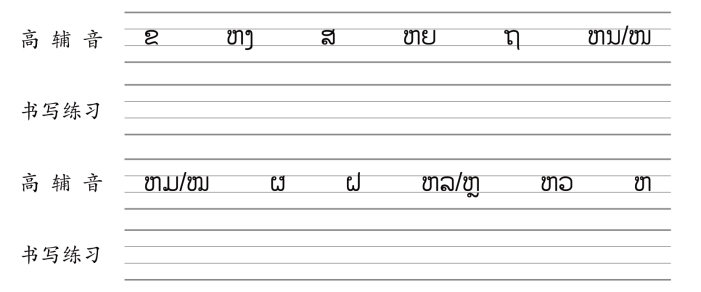 高辅音 ຂ ຫງ ສ ຫຍ ຖ ຫນ/ໜ
书写练习
高辅音 ຫມ/ໝ ຜ ຝ ຫລ/ຫຼ ຫວ ຫ
书写练习